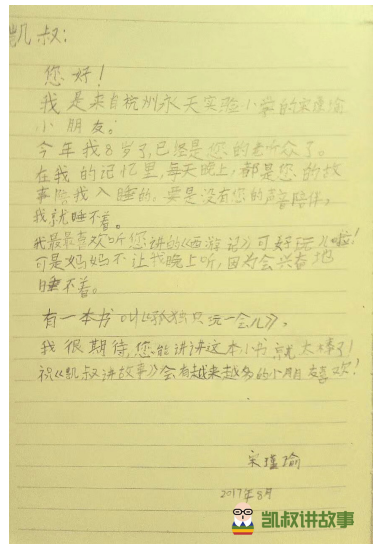 凯叔:
您好!
我是来自杭州永天实验小学的宋瑾瑜
小朋友。
今年我8岁了,已经是您的老听众了。
在我的记忆里,每天晚上,都是您的故
事陪我入睡的,要是没有您的声音陪伴,
我就睡不着。
我最最喜欢听您讲的《西游记》可好玩儿啦!
可是妈妈不让我晚上听,因为会兴奋地
睡不着。
有一本书叫《孤独只玩一会儿》,
我很期待,您能讲讲这本小书就太棒了!
祝《凯叔讲故事》会有越来越多的小朋友喜欢!
宋瑾瑜
2017年8月
凯叔讲故事